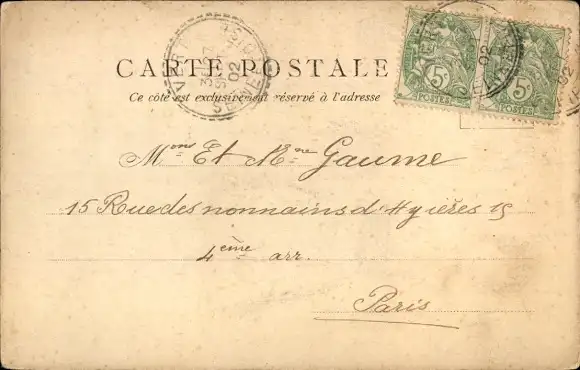 CARTE POSTALE
Ce côté est exclusivement réservé à l'adresse
5c 5c
POSTES POSTES
VERT
02
SEINE
Mons Et Mme Gaume
15 Rue des nonnains d'Hyières 15
4ème arr.
Paris